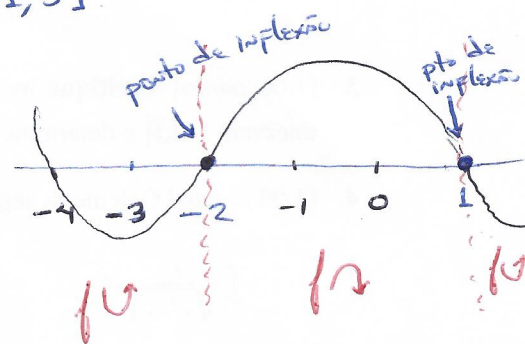 1, 5].
ponto de inflexão
pto de
inflexão
-4 -3 -2 -1 0 1
f f f